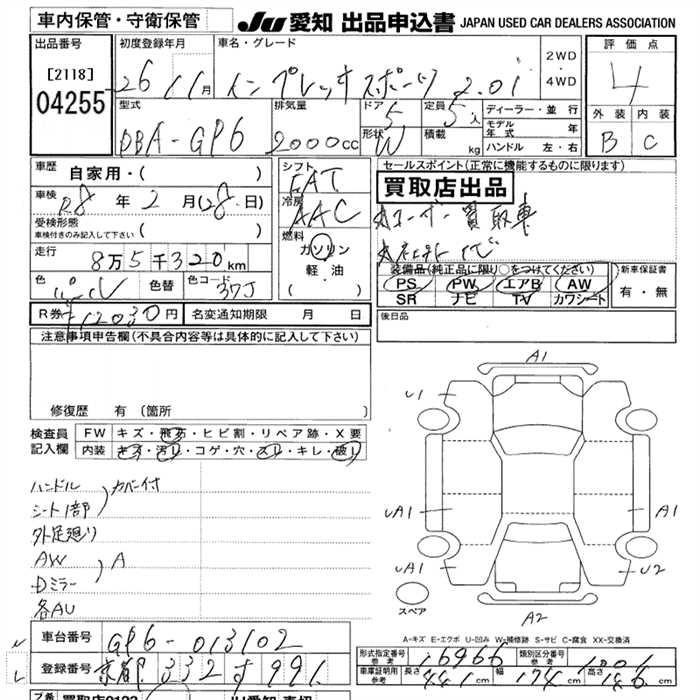 車内保管・守衛保管
JU 愛知 出品申込書 JAPAN USED CAR DEALERS ASSOCIATION
出品番号
[2118]
04255
初度登録年月
26 11月
車名・グレード
インプレッサスポーツ 2.0i
2WD
4WD
評価点
4
外装 内装
B C
型式
DBA-GP6
排気量
2000cc
ドア
5
定員
5人
形状
W
積載
kg
ディーラー・並行
モデル年式 年
ハンドル 左・右
車歴
自家用・( )
車検
R8年 2月(28日)
受検形態
車検付きのみ記入して下さい ( )
走行
8万5千320km
色
パール
色替
色コード
37J
シフト
FAT
冷房
AAC
燃料
ガソリン
軽油
( )
セールスポイント(正常に機能するものに限ります)
買取店出品
大ユーザー買取車
装備品(純正品に限り○をつけてください)
PS PW エアB AW
SR ナビ TV カワシート
新車保証書
有・無
R券 12030円
名変通知期限 月 日
後日品
注意事項申告欄(不具合内容等は具体的に記入して下さい)
修復歴 有(箇所 )
検査員記入欄
FW キズ・飛石・ヒビ割・リペア跡・X要
内装 キズ・汚レ・コゲ・穴・スレ・キレ・破レ
ハンドル
シート1部
カバー付
外足廻り
AW
Dミラー
A
各AU
A1
U1
UA1
A1
UA1
U2
A2
スペア
A-キズ E-エクボ U-凹み W-補修跡 S-サビ C-腐食 XX-交換済
車台番号
GP6-013102
登録番号
京都 332 す 991
形式指定番号
参考
16966
類別区分番号
参考
1001
車庫証明用
参考
長さ 441cm 幅 174cm 高さ 146cm